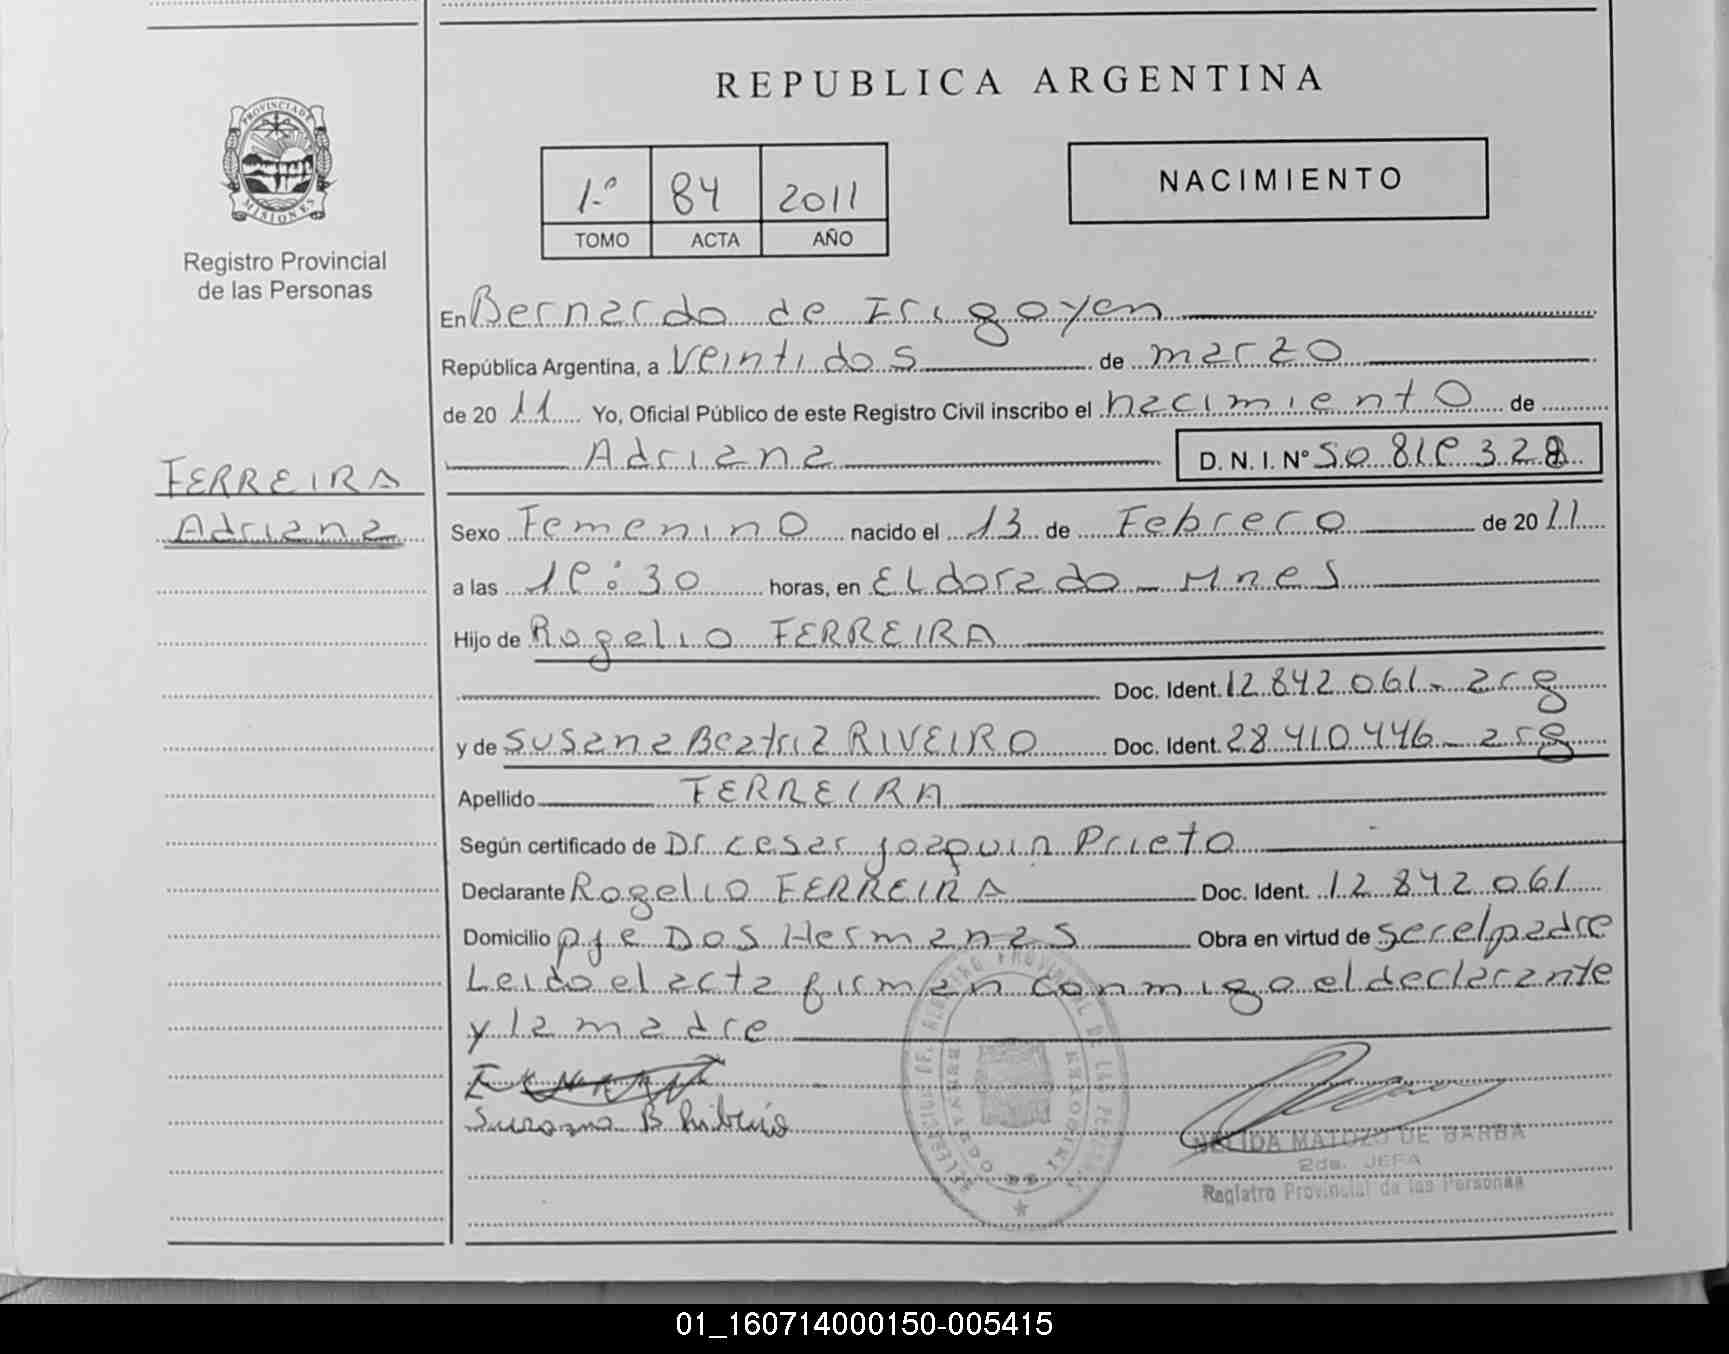 REPUBLICA ARGENTINA
PROVINCIA DE
MISIONES
Registro Provincial
de las Personas
1.º 84 2011
TOMO ACTA AÑO
NACIMIENTO
En Bernardo de Irigoyen
República Argentina, a veintidos de marzo
de 2011 Yo, Oficial Público de este Registro Civil inscribo el nacimiento de
Adriana D. N. I. Nº
FERREIRA
Adriana
Sexo Femenino nacido el 13 de Febrero de 2011
a las horas, en Eldorado - Mnes
Hijo de Rogelio FERREIRA
Doc. Ident. 12.842.061 - arg
y de Susana Beatriz RIVEIRO Doc. Ident. 28.410.446 - arg
Apellido FERREIRA
Según certificado de Dr cesar joaquin Prieto
Declarante Rogelio FERREIRA Doc. Ident. 12.842.061
Domicilio pje Dos Hermanas Obra en virtud de ser el padre
Leido el acta firman conmigo el declarante
y la madre
Susana B
NELIDA MATOZO DE BARBA
2da. JEFA
Registro Provincial de las Personas
01_160714000150-005415